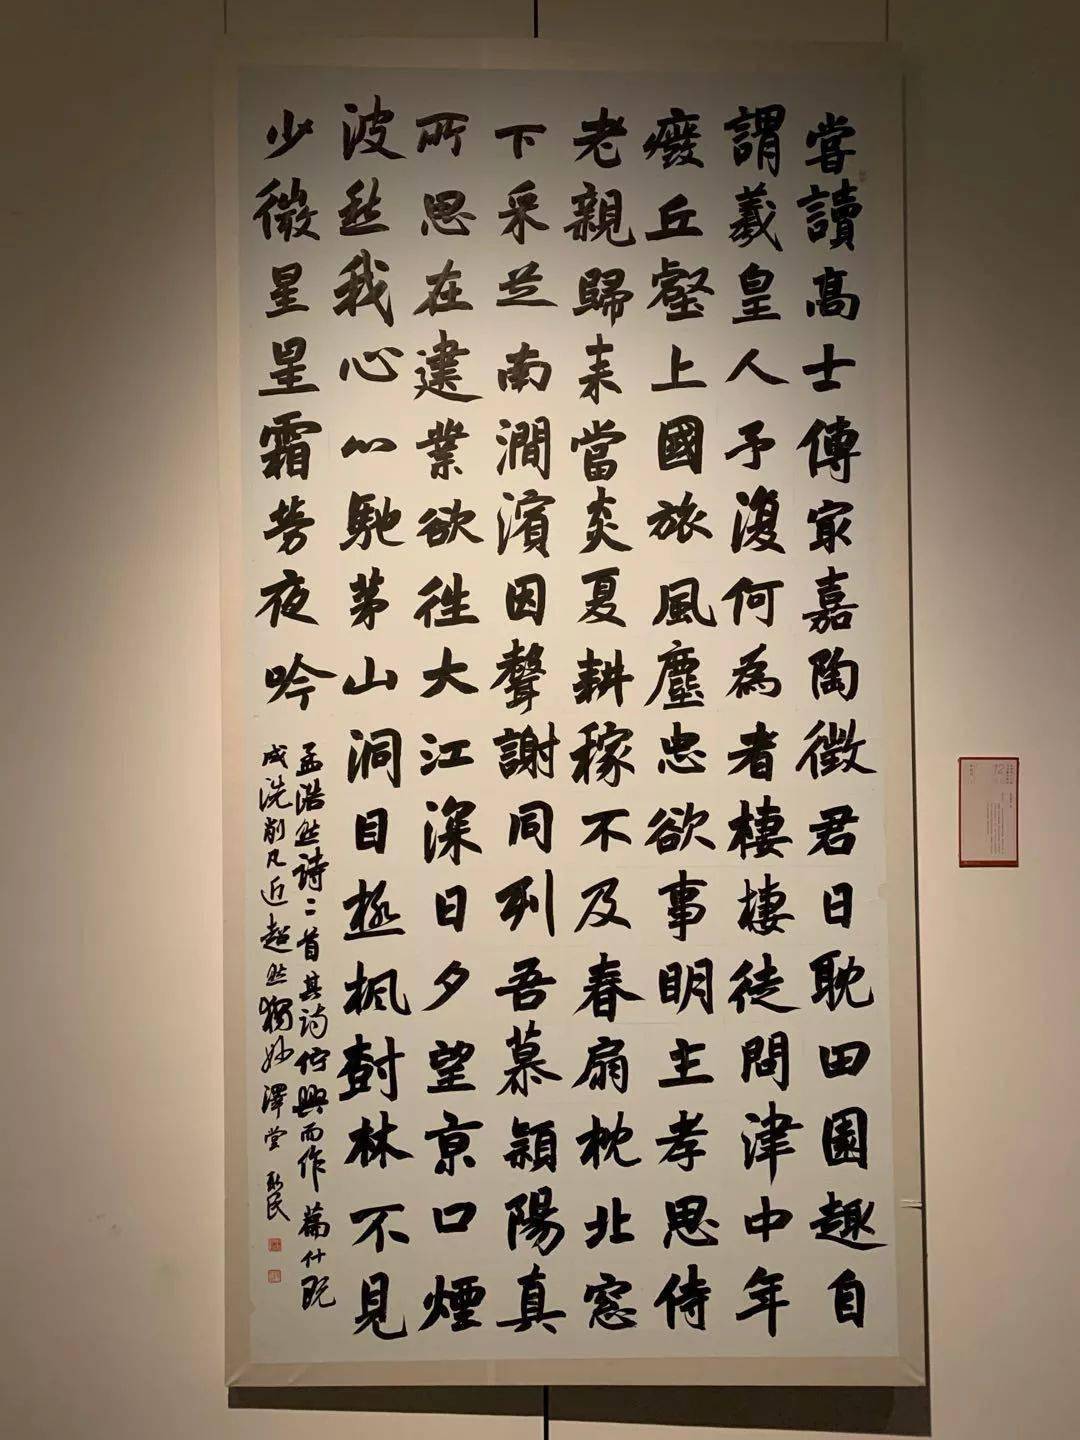 嘗讀高士傳家嘉陶徵君日耽田園趣自
謂羲皇人予復何為者棲棲徒問津中年
癈丘壑上國旅風塵忠欲事明主孝思侍
老親歸来當炎夏耕稼不及春扇枕北窓
下采芝南澗濱因聲謝同列吾慕潁陽真
所思在建業欲往大江深日夕望京口煙
波愁我心心馳茅山洞目極楓樹林不見
少微星星霜勞夜吟
孟浩然詩二首其詩佇興而作篇什既
成洗削凡近超然獨妙澤堂